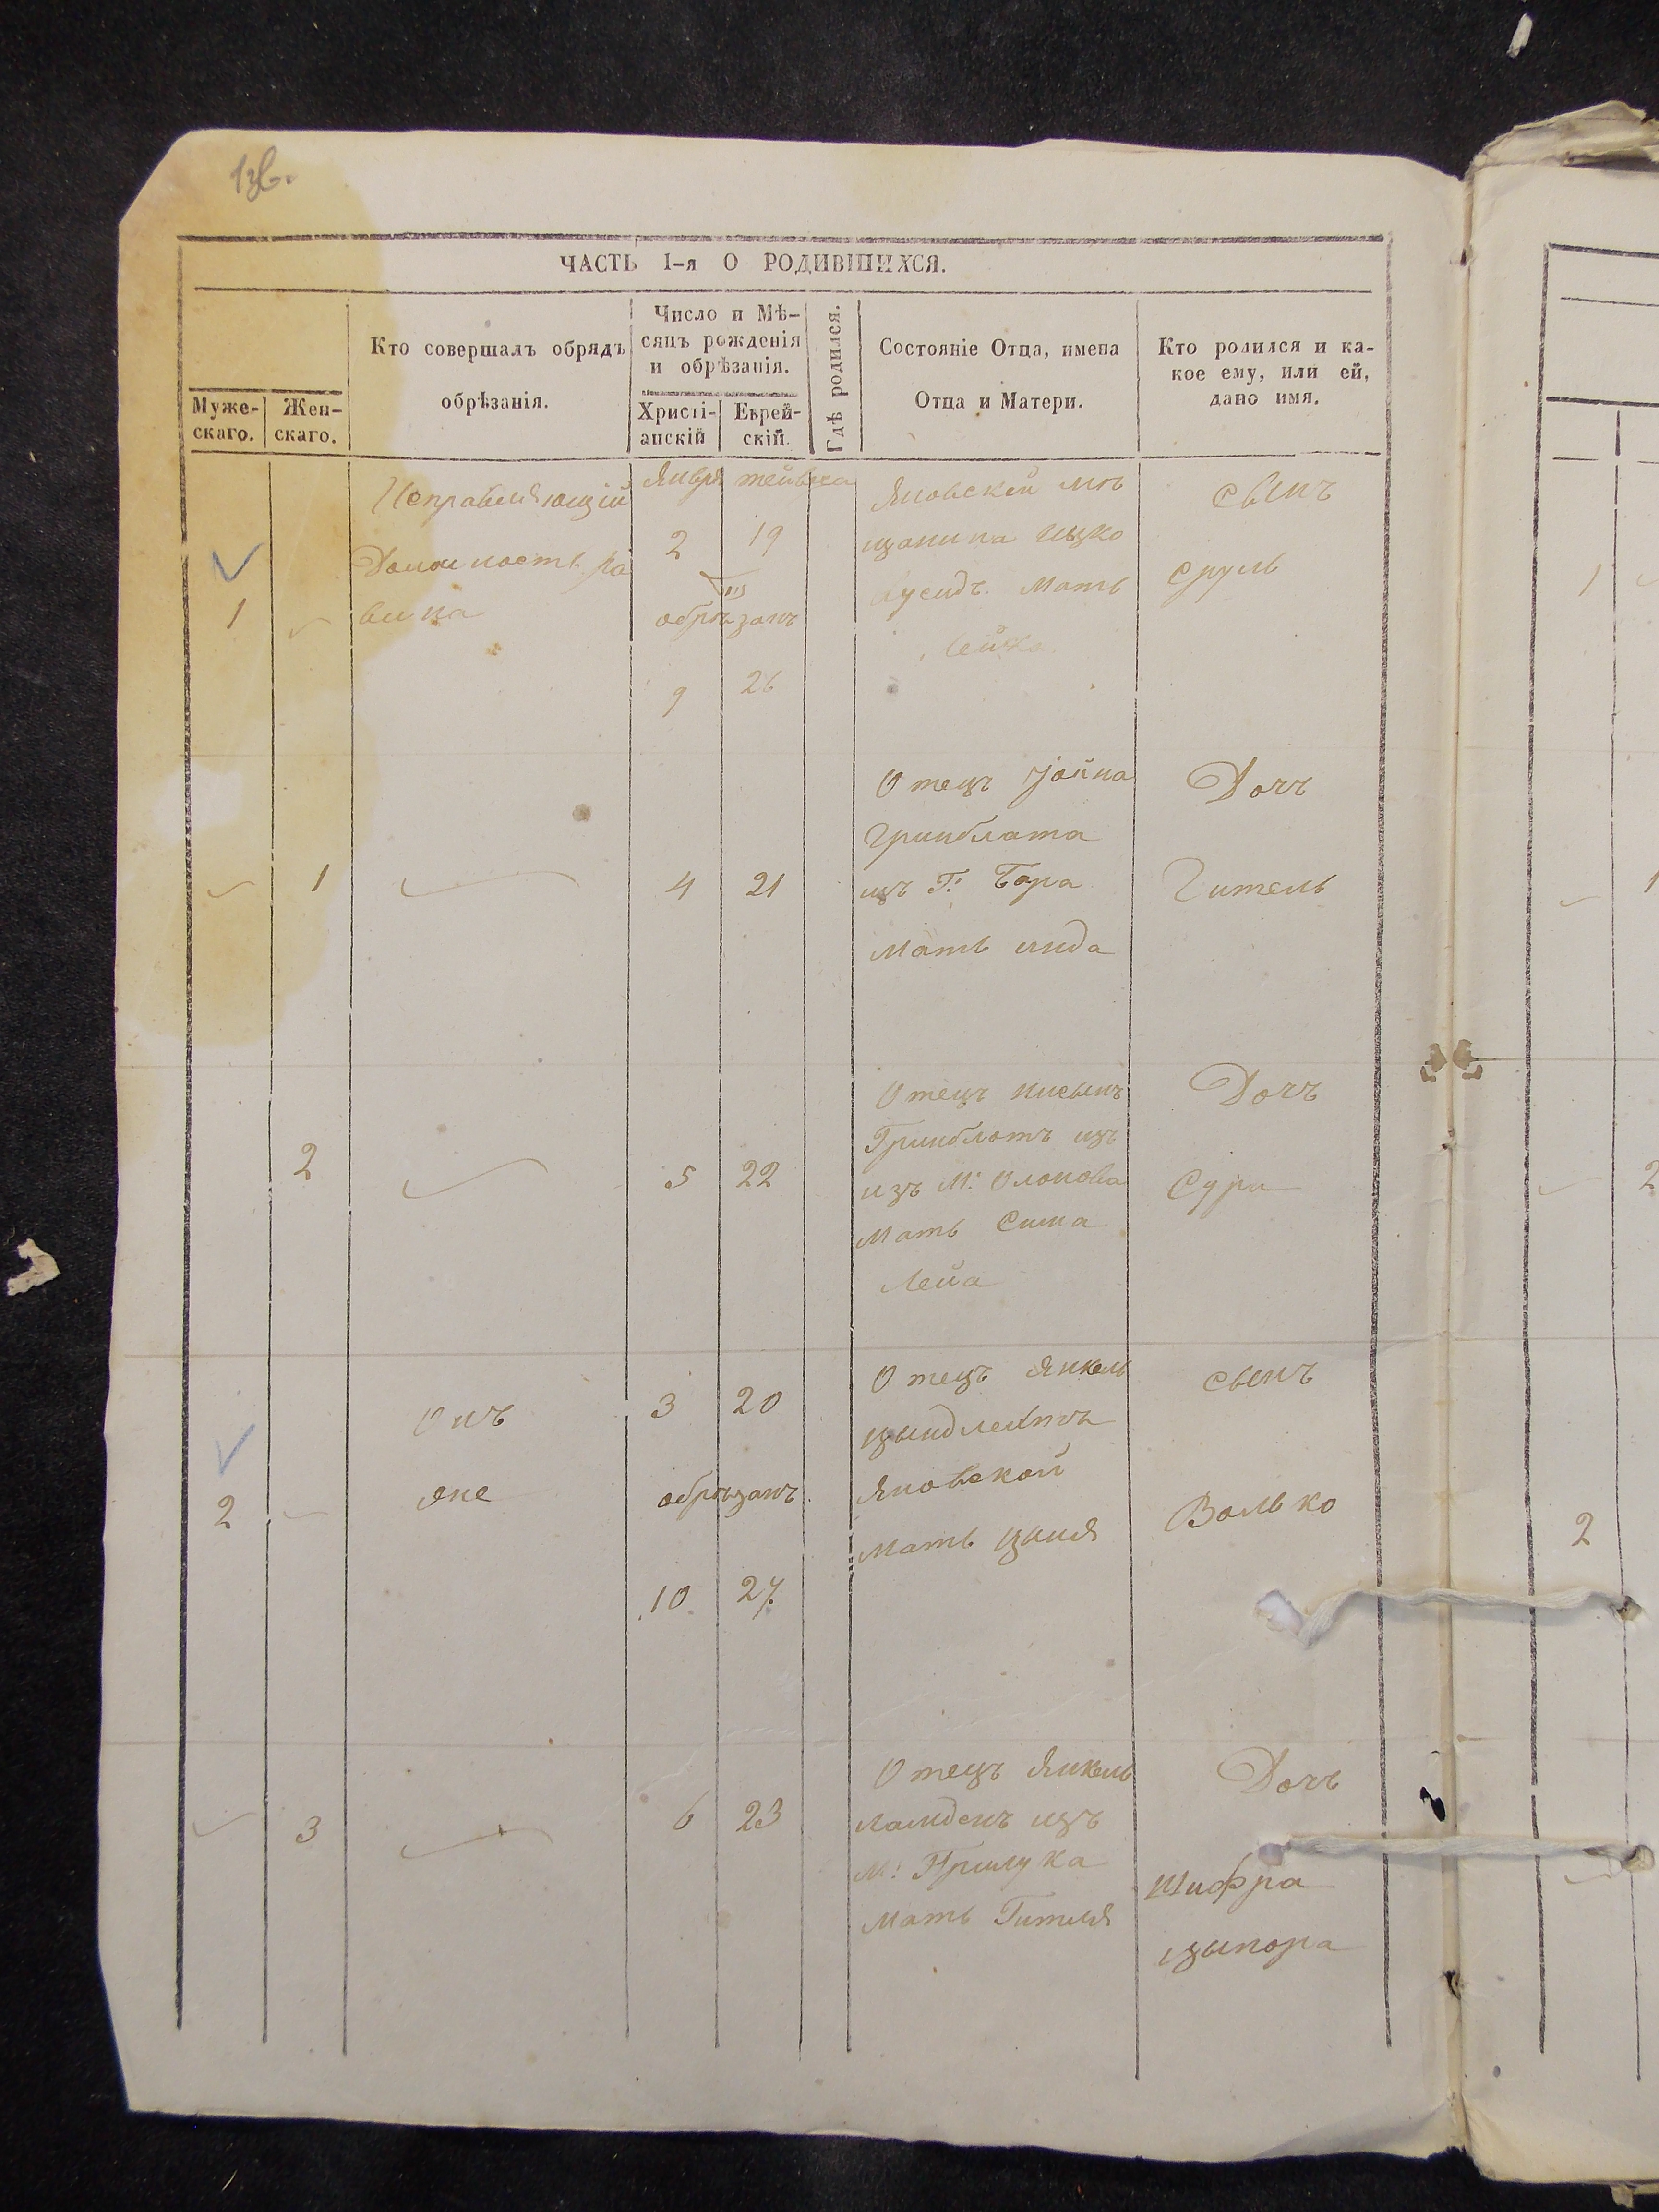 ЧАСТЬ 1-я О РОДИВШИХСЯ.
Муже-
скаго.
Жен-
скаго.
Кто совершалъ обрядъ
обрѣзанія.
Число и Мѣ-
сяцъ рожденія
и обрѣзанія.
Христі-
анскій
Еврей-
скій.
Гдѣ родился.
Состояніе Отца, имена
Отца и Матери.
Кто родился и ка-
кое ему, или ей,
дано имя.
1
Исправляющій
Должность ра
вина
Январ
2
19
обрѣзанъ
9
26
Яновскей мѣ
щанина Ицко
Мать
Лейка
сынъ
Сруль
1
4
21
Отецъ Іойна
Гринблата
изъ Г: Бара
Мать
Дочъ
Гитель
2
5
22
Отецъ Нисынъ
Гринблатъ изъ
изъ М:
Мать Сима
Лейа
Дочъ
Сура
2
Онъ
яке
3
20
обрѣзанъ.
10
27
Отецъ Янкель
Яновской
Мать
сынъ
Волько
3
6
23
Отецъ Янкель
Ламденъ изъ
М: Прилука
Мать Гителя
Дочь
Шифра
Цыпора
1
1
2
2